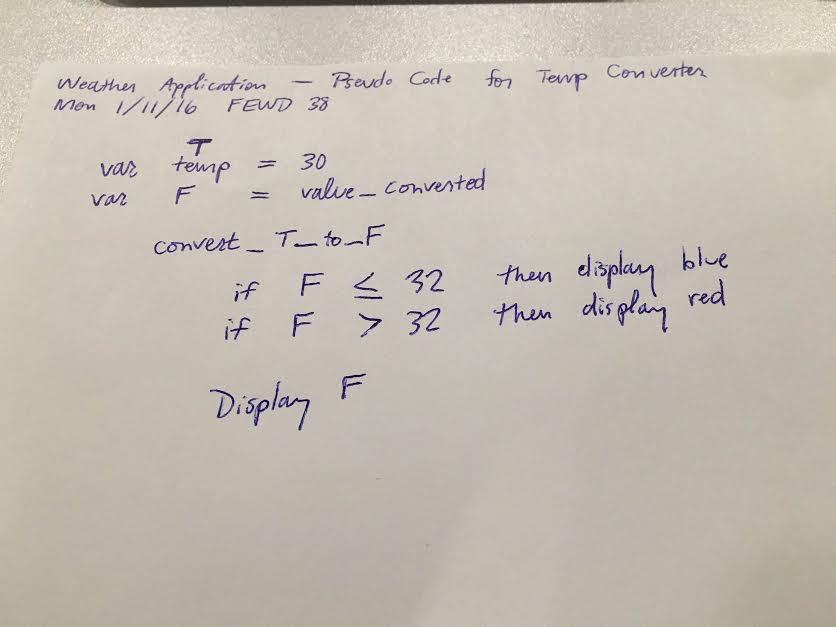 Weather Application — Pseudo Code for Temp Converter
Mon 1/11/16 FEWD 38
T
var temp = 30
var F = value_converted
convert_T_to_F
if F ≤ 32 then display blue
if F > 32 then display red
Display F